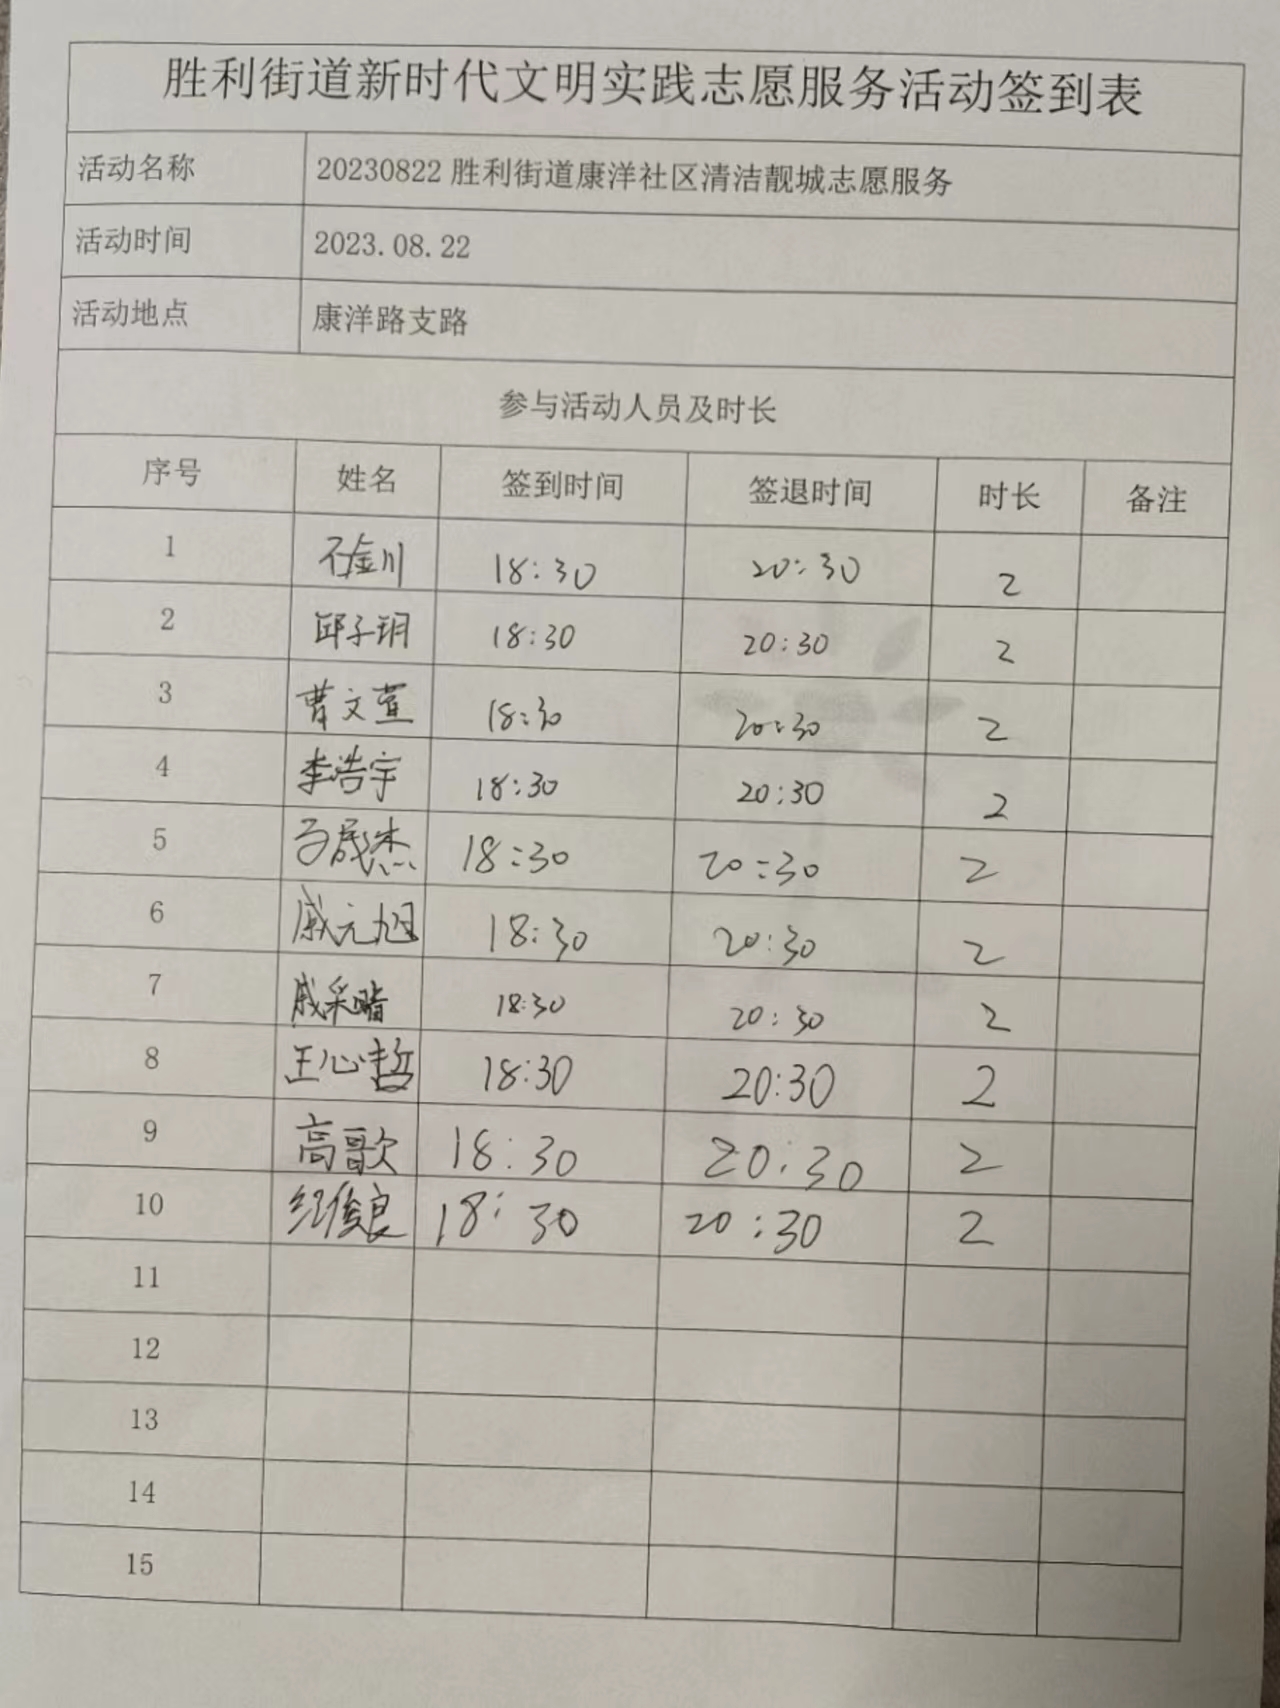 胜利街道新时代文明实践志愿服务活动签到表
活动名称 20230822胜利街道康洋社区清洁靓城志愿服务
活动时间 2023.08.22
活动地点 康洋路支路
参与活动人员及时长
序号 姓名 签到时间 签退时间 时长 备注
1 石金川 18:30 20:30 2
2 邱子玥 18:30 20:30 2
3 曹文萱 18:30 20:30 2
4 李浩宇 18:30 20:30 2
5 18:30 20:30 2
6 戚元旭 18:30 20:30 2
7 戚采 18:30 20:30 2
8 王心哲 18:30 20:30 2
9 高歌 18:30 20:30 2
10 纪俊良 18:30 20:30 2
11
12
13
14
15